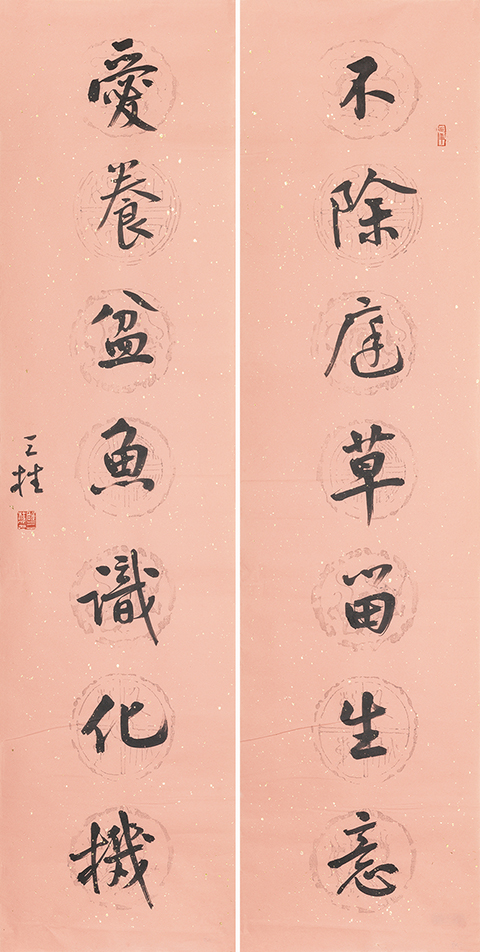 不除庭草留生意
愛養盆魚識化機